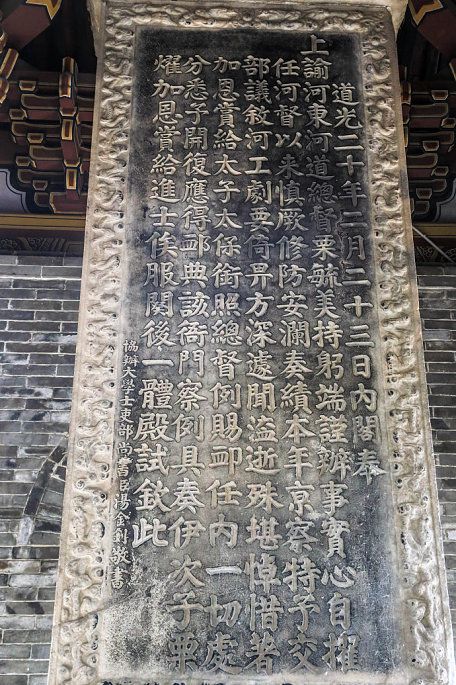 道光二十年二月二十三日內閣奉
上諭河東河道總督栗毓美持躬端謹辦事實心自擢
任河督以來慎厥修防安瀾奏績本年京察特予交
部議敘河工劇要倚畀方深遽聞溘逝殊堪悼惜著
加恩賞給太子太保銜照總督例賜卹任內一切處
分悉予開復應得卹典該衙門察例具奏伊次子栗
燿加恩賞給進士俟服闋後一體殿試欽此
協辦大學士吏部尚書臣湯金釗敬書